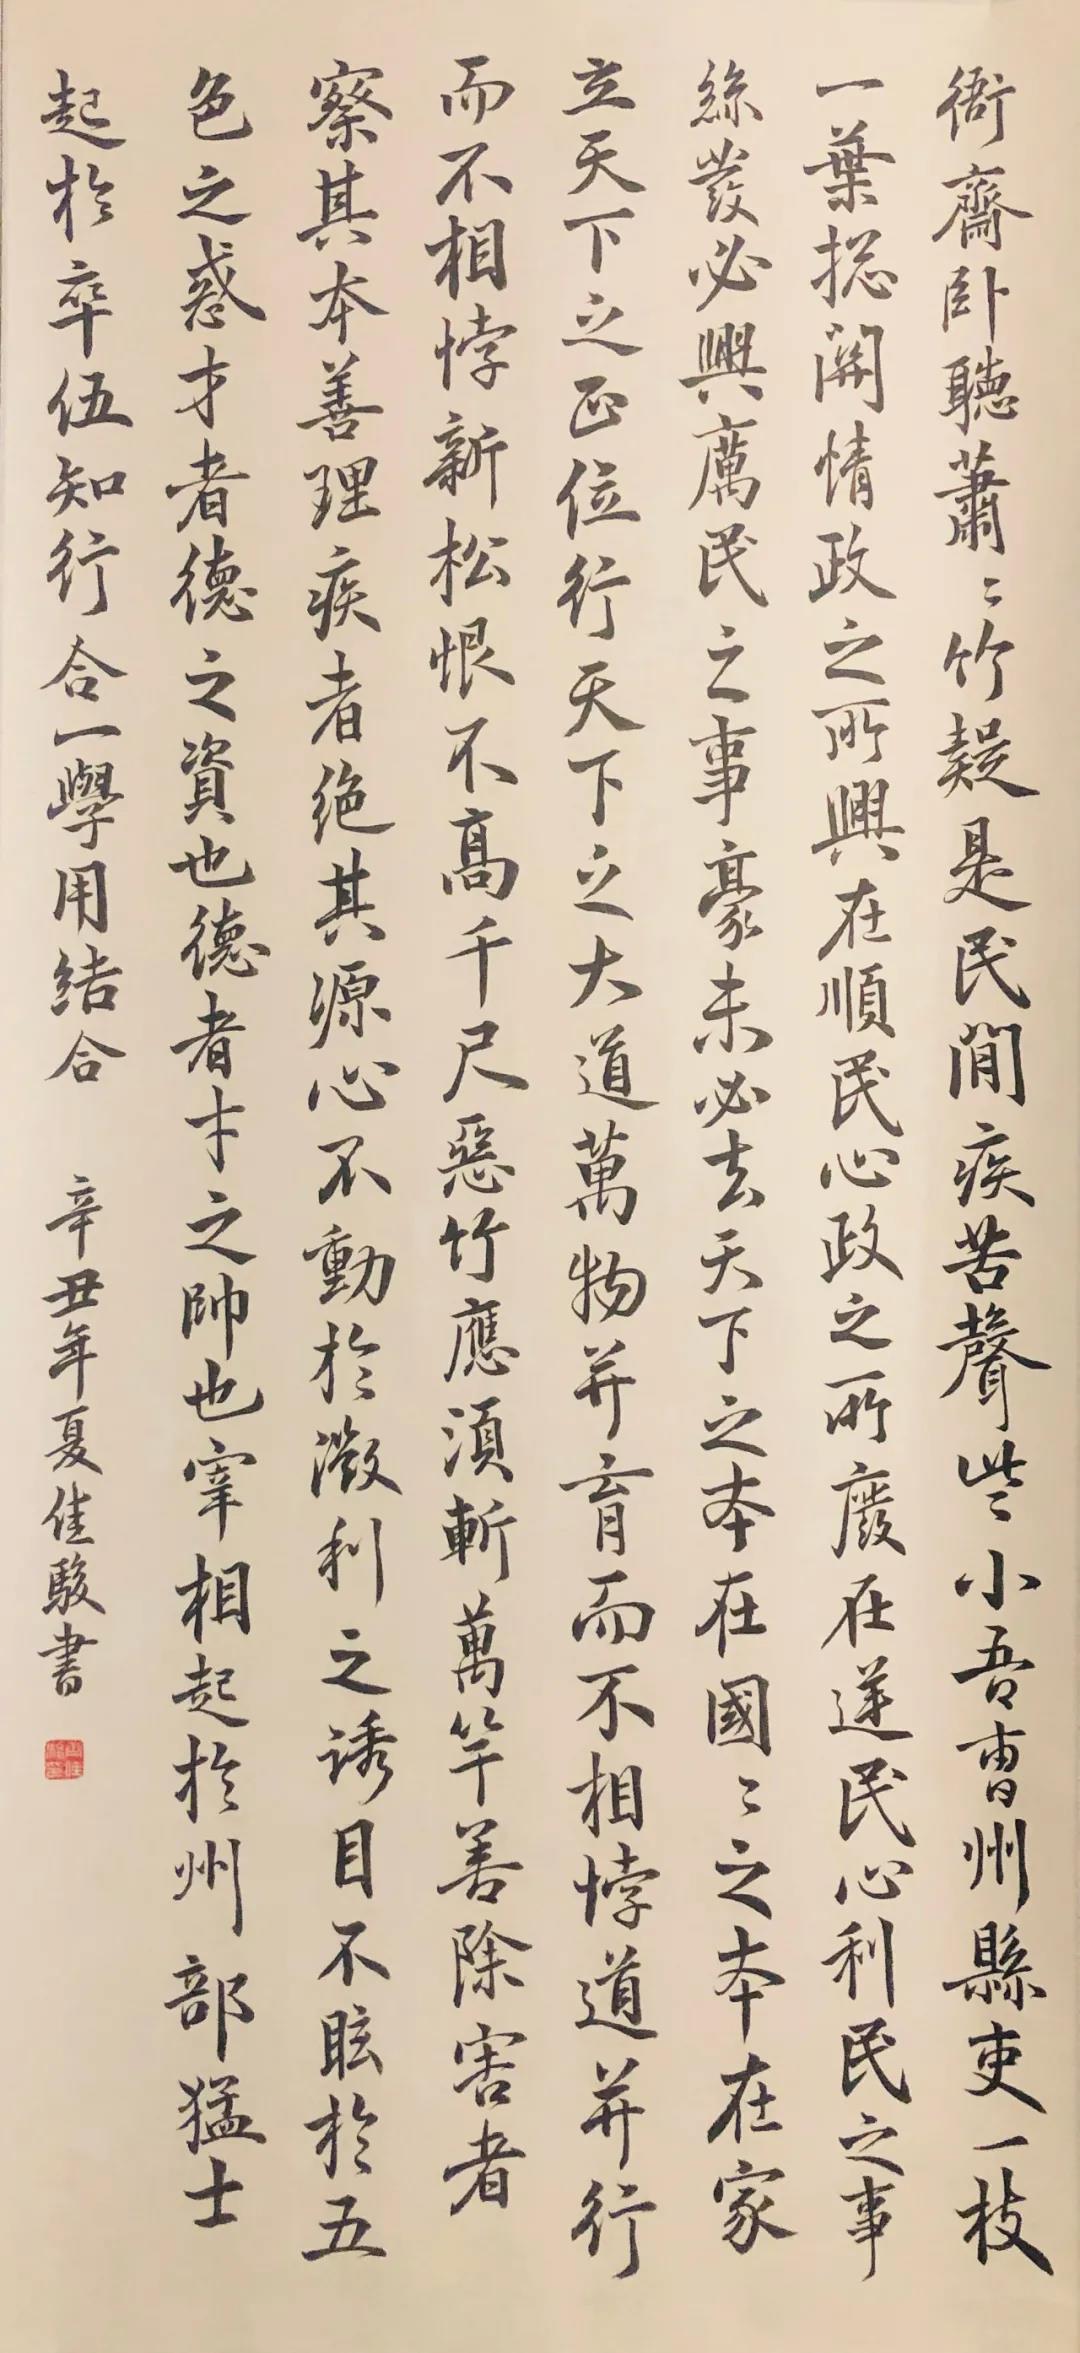 衙齋卧聽蕭〻竹疑是民間疾苦聲些小吾曹州縣吏一枝
一葉捴關情政之所興在順民心政之所廢在逆民心利民之事
絲發必興厲民之事豪末必去天下之本在國〻之本在家
立天下之正位行天下之大道萬物并育而不相悖道并行
而不相悖新松恨不高千尺惡竹應須斬萬竿善除害者
察其本善理疾者绝其源心不動於微利之誘目不眩於五
色之惑才者德之資也德者才之帥也宰相起於州部猛士
起於卒伍知行合一學用结合 辛丑年夏佳駿書